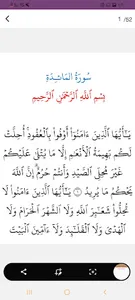 1/52
سُورَةُ المَائِدَةِ
بِسْمِ ٱللَّهِ ٱلرَّحْمَٰنِ ٱلرَّحِيمِ
يَٰٓأَيُّهَا ٱلَّذِينَ ءَامَنُوٓا۟ أَوْفُوا۟ بِٱلْعُقُودِ أُحِلَّتْ
لَكُم بَهِيمَةُ ٱلْأَنْعَٰمِ إِلَّا مَا يُتْلَىٰ عَلَيْكُمْ
غَيْرَ مُحِلِّى ٱلصَّيْدِ وَأَنتُمْ حُرُمٌ إِنَّ ٱللَّهَ
يَحْكُمُ مَا يُرِيدُ ١ يَٰٓأَيُّهَا ٱلَّذِينَ ءَامَنُوا۟ لَا
تُحِلُّوا۟ شَعَٰٓئِرَ ٱللَّهِ وَلَا ٱلشَّهْرَ ٱلْحَرَامَ وَلَا
ٱلْهَدْىَ وَلَا ٱلْقَلَٰٓئِدَ وَلَآ ءَآمِّينَ ٱلْبَيْتَ